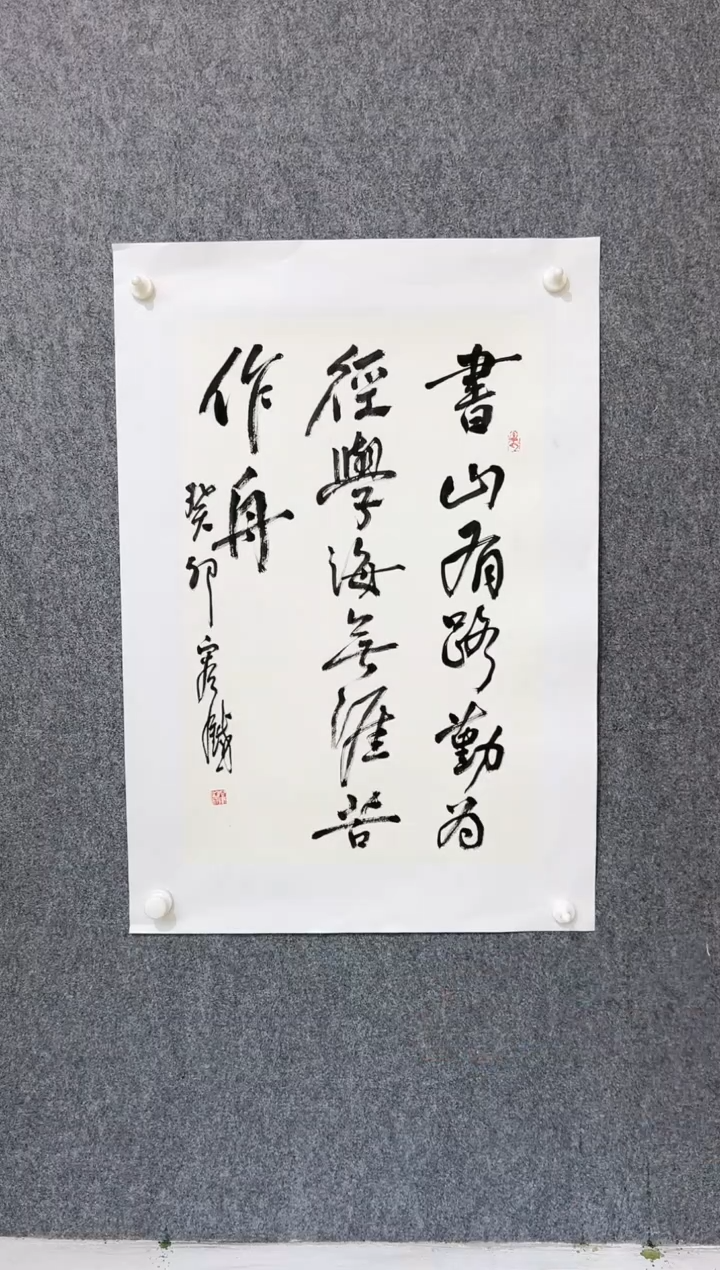 書山有路勤为
徑學海無涯苦
作舟
癸卯